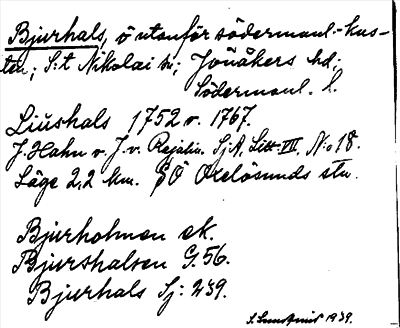 Bjurhals, ö utanför södermanl.-kus-
ten; S:t Nikolai sn; Jönåkers hd;
Södermanl. l.
Liushals 1752 o. 1767.
J. Hahn o. J. v. Rajalin. Sj.A, Litt. VII, N:o 18.
Läge 2,2 km. SÖ Oxelösunds stn.
Bjurholmen ek.
Bjurshalsen G. 56.
Bjurhals Sj: 239.
1939.